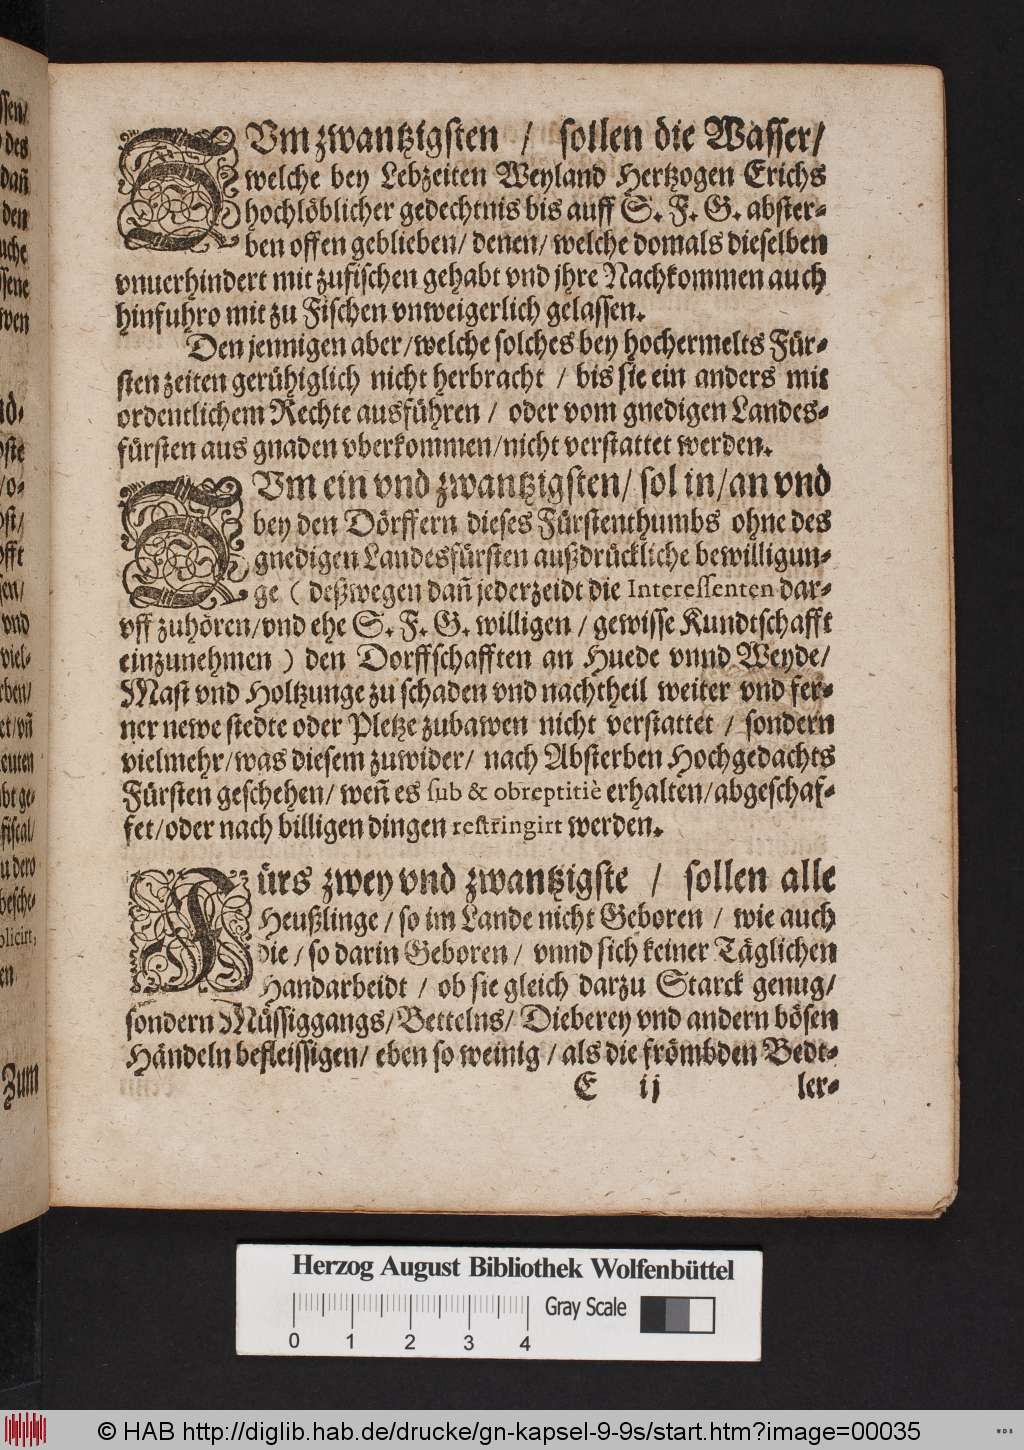 ZVm zwantzigsten / sollen die Wasser/
welche bey Lebzeiten Weyland Hertzogen Erichs
hochlöblicher gedechtnis bis auff S. F. G. abster-
ben offen geblieben/ denen/ welche domals dieselben
vnuerhindert mit zufischen gehabt vnd jhre Nachkommen auch
hinfuhro mit zu Fischen vnweigerlich gelassen.
Den jennigen aber/welche solches bey hochermelts Für-
sten zeiten gerühiglich nicht herbracht / bis sie ein anders mit
ordentlichem Rechte ausführen / oder vom gnedigen Landes-
fürsten aus gnaden vberkommen/nicht verstattet werden.
ZVm ein vnd zwantzigsten/ sol in/an vnd
bey den Dörffern dieses Fürstenthumbs ohne des
gnedigen Landesfürsten außdrückliche bewilligun-
ge ( deßwegen dañ jederzeidt die Interessenten dar-
vff zuhören/vnd ehe S. F. G. willigen / gewisse Kundtschafft
einzunehmen ) den Dorffschafften an Huede vnnd Weyde/
Mast vnd Holtzunge zu schaden vnd nachtheil weiter vnd fer-
ner newe stedte oder Pletze zubawen nicht verstattet / sondern
vielmehr/was diesem zuwider/ nach Absterben Hochgedachts
Fürsten geschehen/ weñ es sub & obreptitiè erhalten/abgeschaf-
fet/oder nach billigen dingen restringirt werden.
Fürs zwey vnd zwantzigste / sollen alle
Heußlinge / so im Lande nicht Geboren / wie auch
die / so darin Geboren / vnnd sich keiner Täglichen
Handarbeidt / ob sie gleich darzu Starck genug/
sondern Müssiggangs/Bettelns/ Dieberey vnd andern bösen
Händeln befleissigen/ eben so weinig / als die frömbden Bedt-
E ij ler-
ssen/
des
dañ
den
uche
ssene
/o-
sen/
vnd
viel-
rben/
et/vñ
euten
abt ge-
fiscal/
u dero
besche-
plicirt,
en
Zum
Herzog August Bibliothek Wolfenbüttel
Gray Scale
0 1 2 3 4
© HAB http://diglib.hab.de/drucke/gn-kapsel-9-9s/start.htm?image=00035